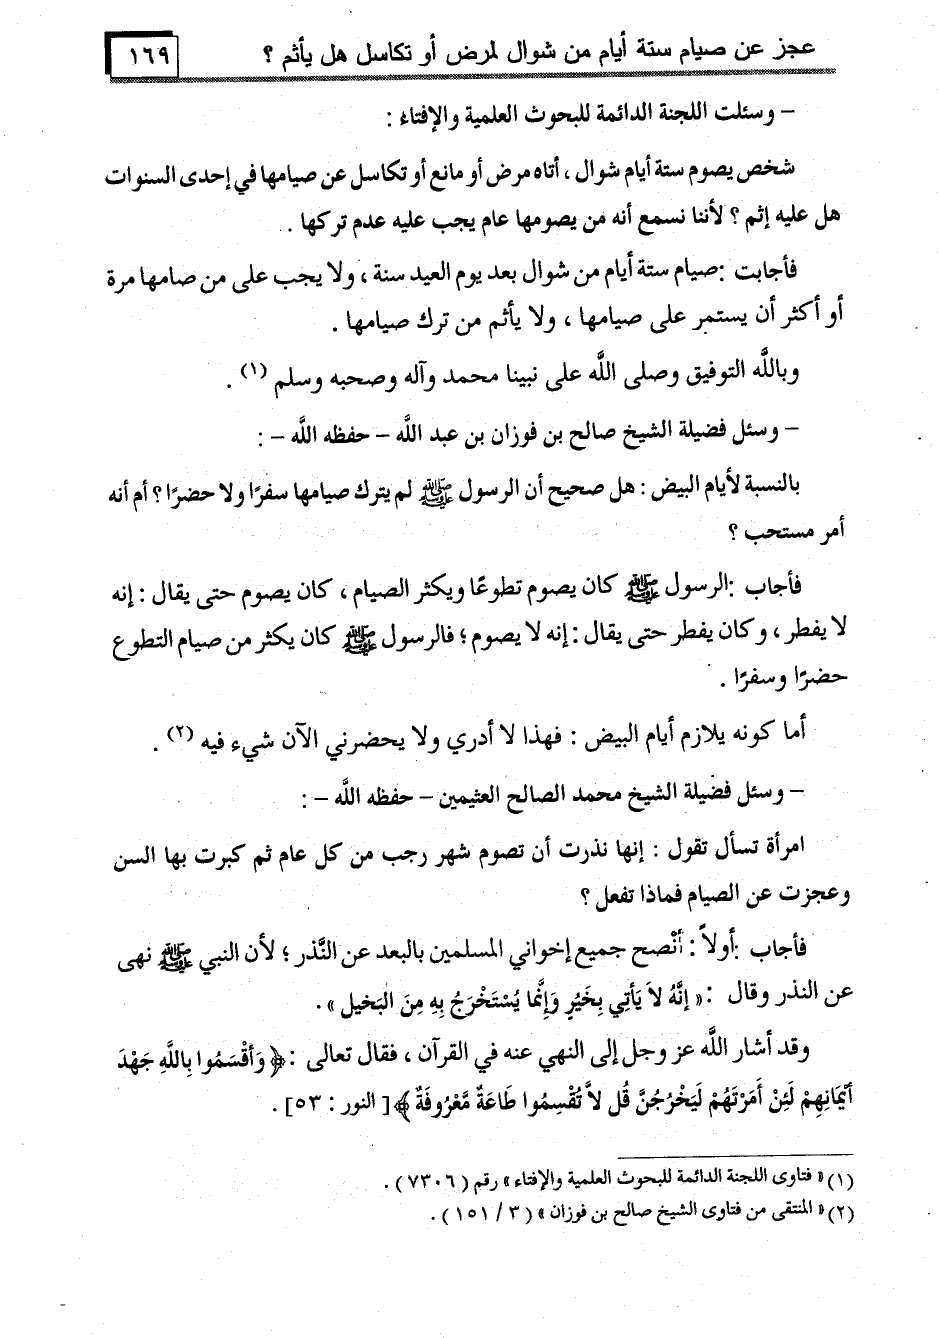 عجز عن صيام ستة أيام من شوال لمرض أو تكاسل هل يأثم ؟ ١٦٩
– وسئلت اللجنة الدائمة للبحوث العلمية والإفتاء :
شخص يصوم ستة أيام شوال ، أتاه مرض أو مانع أو تكاسل عن صيامها في إحدى السنوات
هل عليه إثم ؟ لأننا نسمع أنه من يصومها عام يجب عليه عدم تركها .
فأجابت :صيام ستة أيام من شوال بعد يوم العيد سنة ، ولا يجب على من صامها مرة
أو أكثر أن يستمر على صيامها ، ولا يأثم من ترك صيامها .
وباللَّه التوفيق وصلى اللَّه على نبينا محمد وآله وصحبه وسلم (١) .
– وسئل فضيلة الشيخ صالح بن فوزان بن عبد اللَّه – حفظه اللَّه – :
بالنسبة لأيام البيض : هل صحيح أن الرسول ﷺ لم يترك صيامها سفرًا ولا حضرًا ؟ أم أنه
أمر مستحب ؟
فأجاب :الرسول ﷺ كان يصوم تطوعًا ويكثر الصيام ، كان يصوم حتى يقال : إنه
لا يفطر ، وكان يفطر حتى يقال : إنه لا يصوم ؛ فالرسول ﷺ كان يكثر من صيام التطوع
حضرًا وسفرًا .
أما كونه يلازم أيام البيض : فهذا لا أدري ولا يحضرني الآن شيء فيه (٢) .
– وسئل فضيلة الشيخ محمد الصالح العثيمين – حفظه اللَّه – :
امرأة تسأل تقول : إنها نذرت أن تصوم شهر رجب من كل عام ثم كبرت بها السن
وعجزت عن الصيام فماذا تفعل ؟
فأجاب :أولاً : أنْصح جميع إخواني المسلمين بالبعد عن النَّذر ؛ لأن النبي ﷺ نهى
عن النذر وقال :« إنَّهُ لاَ يَأتِي بِخَيْرٍ وَإِنَّما يُسْتَخْرَجُ بِهِ مِنَ البَخيل » .
وقد أشار اللَّه عز وجل إلى النهي عنه في القرآن ، فقال تعالى :﴿ وَأَقْسَمُوا بِاللَّهِ جَهْدَ
أَيْمَانِهِمْ لَئِنْ أَمَرْتَهُمْ لَيَخْرُجُنَّ قُل لاَّ تُقْسِمُوا طَاعَةٌ مَّعْرُوفَةٌ ﴾[ النور : ٥٣] .
(١)« فتاوى اللجنة الدائمة للبحوث العلمية والإفتاء » رقم ( ٧٣٠٦ ) .
(٢)« المنتقى من فتاوى الشيخ صالح بن فوزان » ( ٣ / ١٥١ ) .